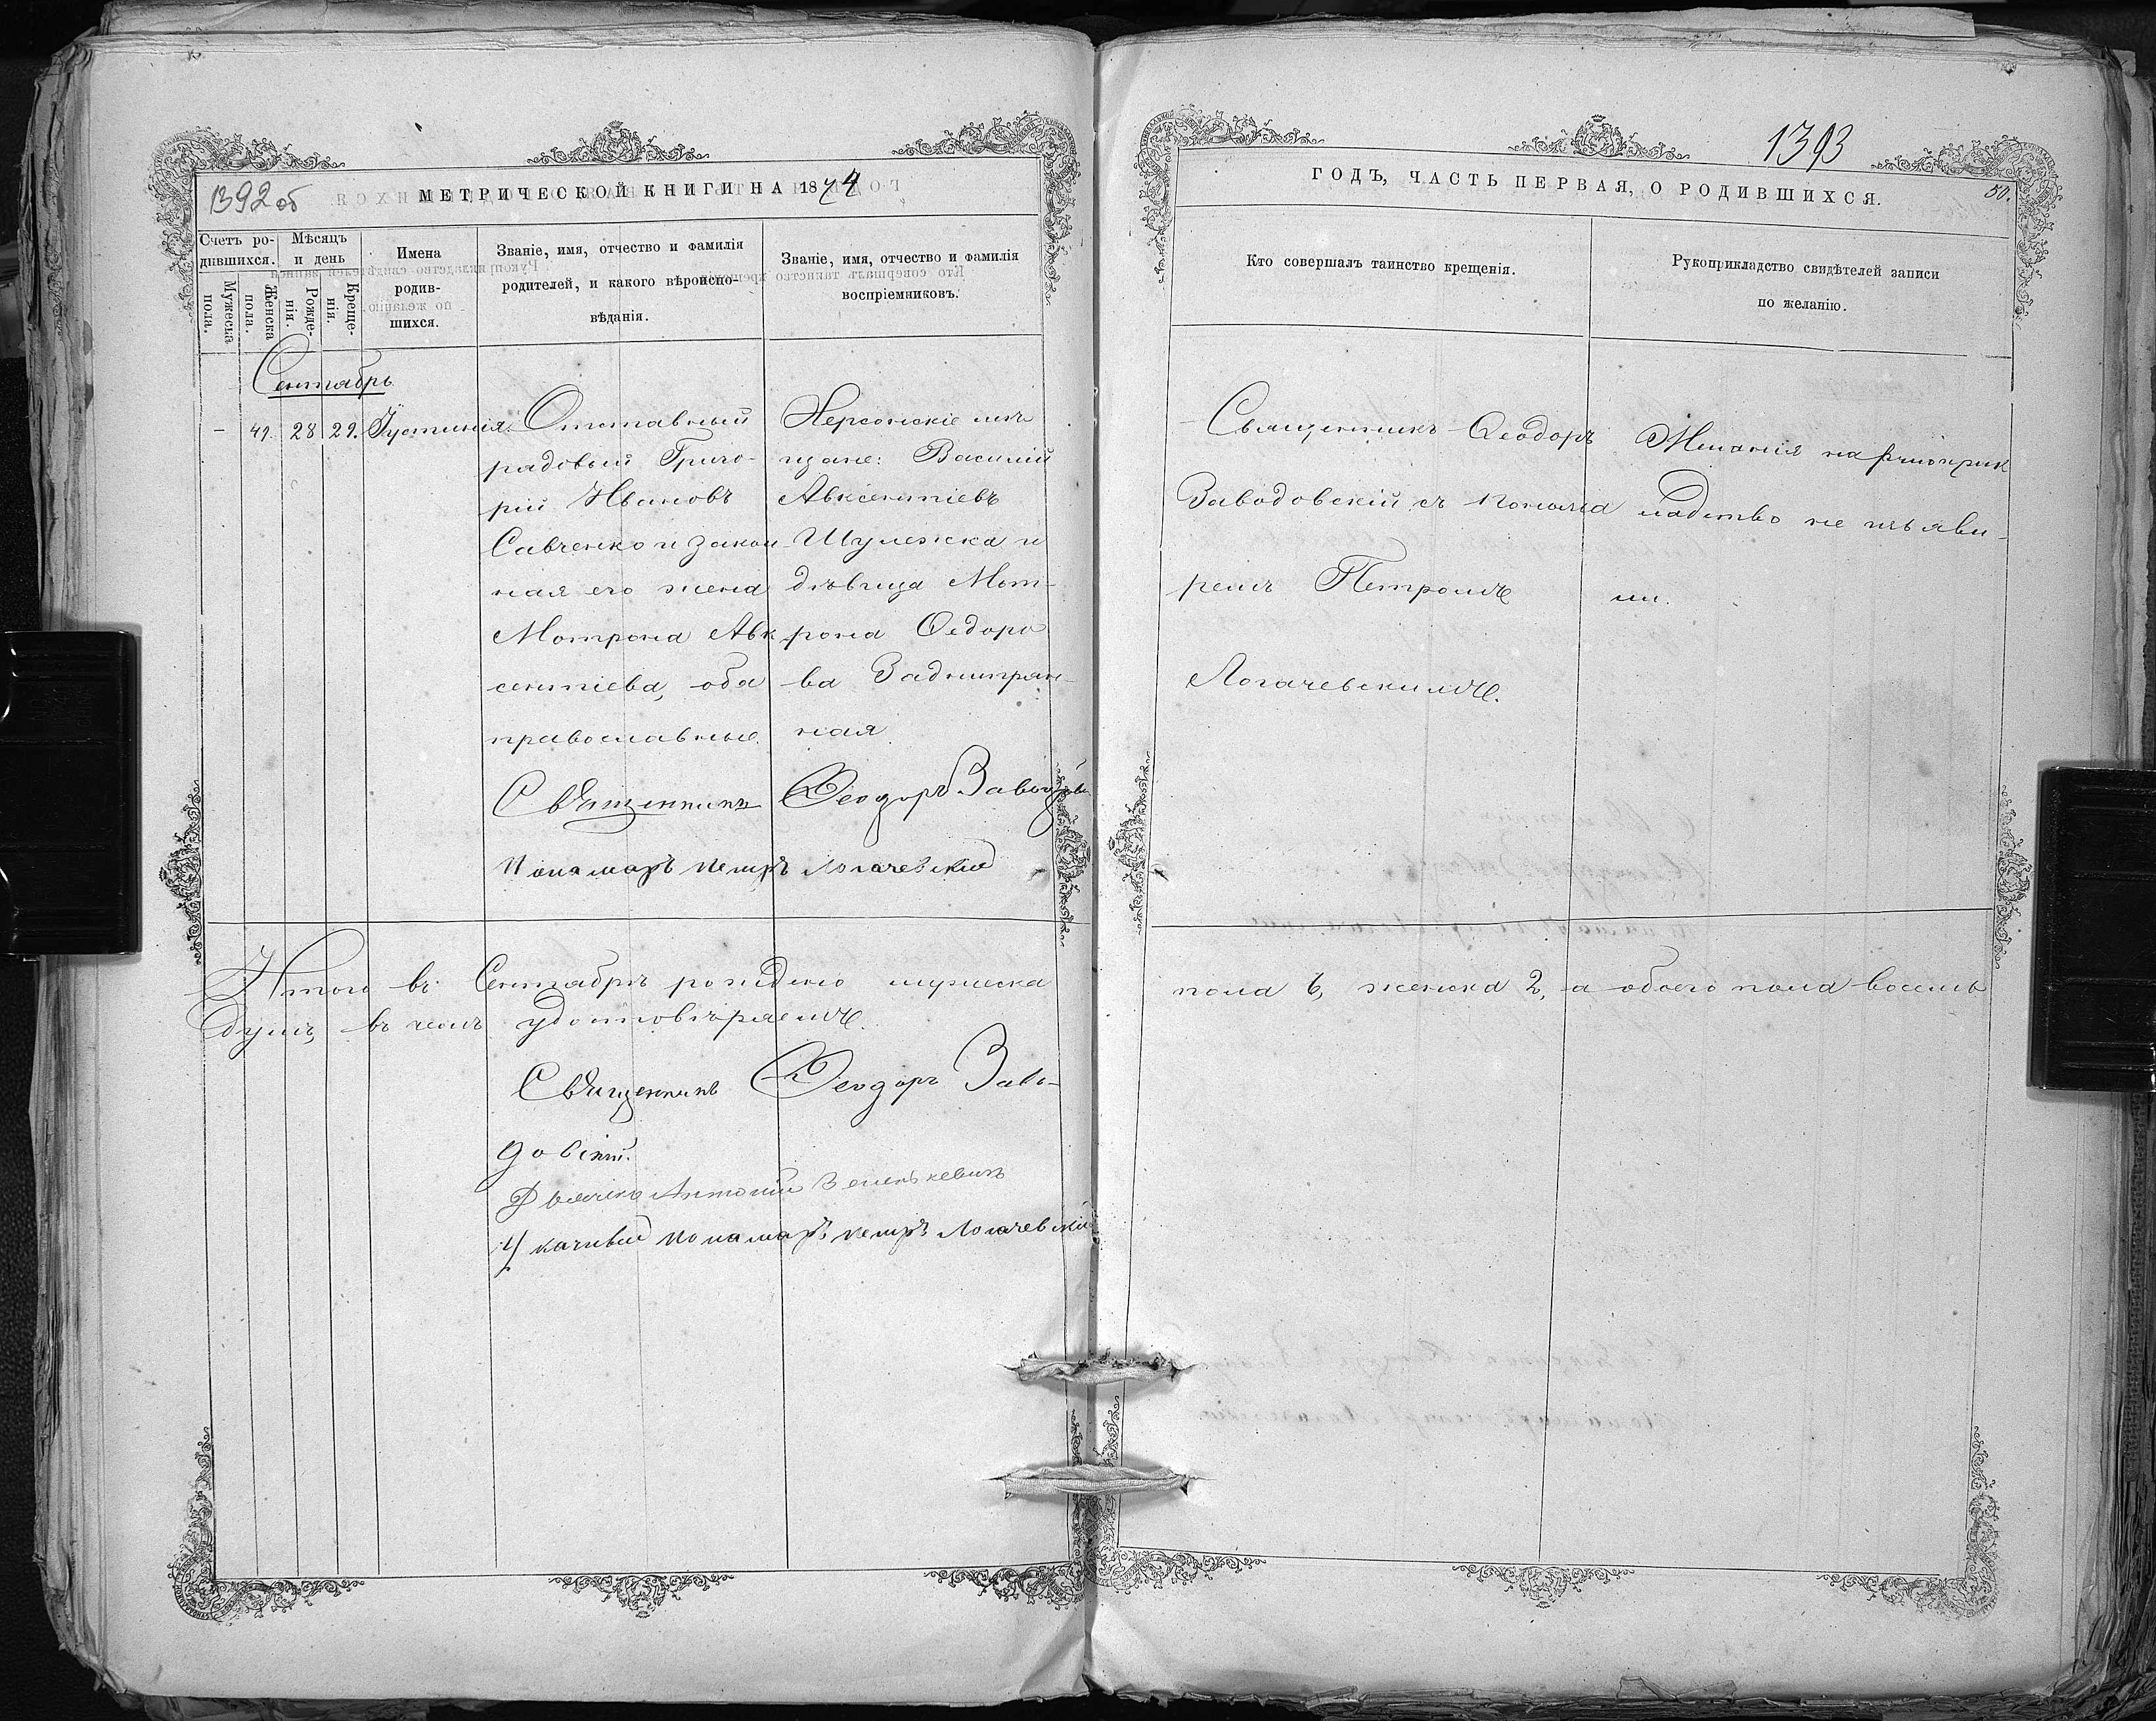 1392 об
МЕТРИЧЕСКОЙ КНИГИ НА 1874
Счетъ ро-
дившихся.
Мужеска
пола.
Женска
пола.
Мѣсяцъ
и день
Рожде-
нія.
Креще-
нія.
Имена
родив-
шихся.
Званіе, имя, отчество и фамилія
родителей, и какого вѣроиспо-
вѣданія.
Званіе, имя, отчество и фамилія
воспріемниковъ.
Сентябрь
- 49. 28 29. Іустинія.
Отставный
рядовый Григо-
рій Ивановъ
Савченко и закон
ная его жена
Мотрона Авк
сентіева, оба
православные.
Херсонскіе мѣ
щане: Василій
Авксентіевъ
Шулежка и
дѣвица Мот-
рона Ѳедоро
ва Заднипрян-
ная
Священникъ Ѳеодоръ Заводов
Пономаръ Петръ Логачевскій
Итого въ Сентябрѣ рождено мужеска
душъ, въ чемъ удостовѣряемъ.
Священникъ Ѳеодоръ Заво-
довскій.
Дьячекъ Антоній
пономаръ Петръ Логачевскій
1393
50.
ГОДЪ, ЧАСТЬ ПЕРВАЯ, О РОДИВШИХСЯ.
Кто совершалъ таинство крещенія.
Рукоприкладство свидѣтелей записи
по желанію.
Священникъ Ѳеодоръ
Заводовскій съ понома
ремъ Петромъ
Логачевскимъ.
Желанія на рукоприк
ладство не изъяви-
ли.
пола 6, женска 2, а обоего пола восемь